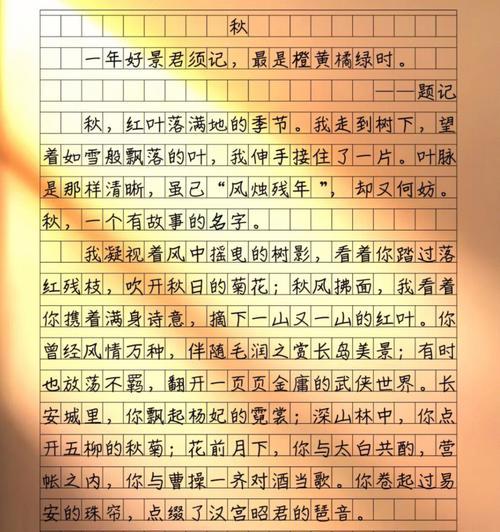 秋
一年好景君须记，最是橙黄橘绿时。
——题记
秋，红叶落满地的季节。我走到树下，望
着如雪般飘落的叶，我伸手接住了一片。叶脉
是那样清晰，虽已“风烛残年”，却又何妨。
秋，一个有故事的名字。
我凝视着风中摇曳的树影，看着你踏过落
红残枝，吹开秋日的菊花；秋风拂面，我看着
你携着满身诗意，摘下一山又一山的红叶。你
曾经风情万种，伴随毛润之赏长岛美景；有时
也放荡不羁，翻开一页页金庸的武侠世界。长
安城里，你飘起杨妃的霓裳；深山林中，你点
开五柳的秋菊；花前月下，你与太白共酌，营
帐之内，你与曹操一齐对酒当歌。你卷起过易
安的珠帘，点缀了汉宫昭君的琵音。